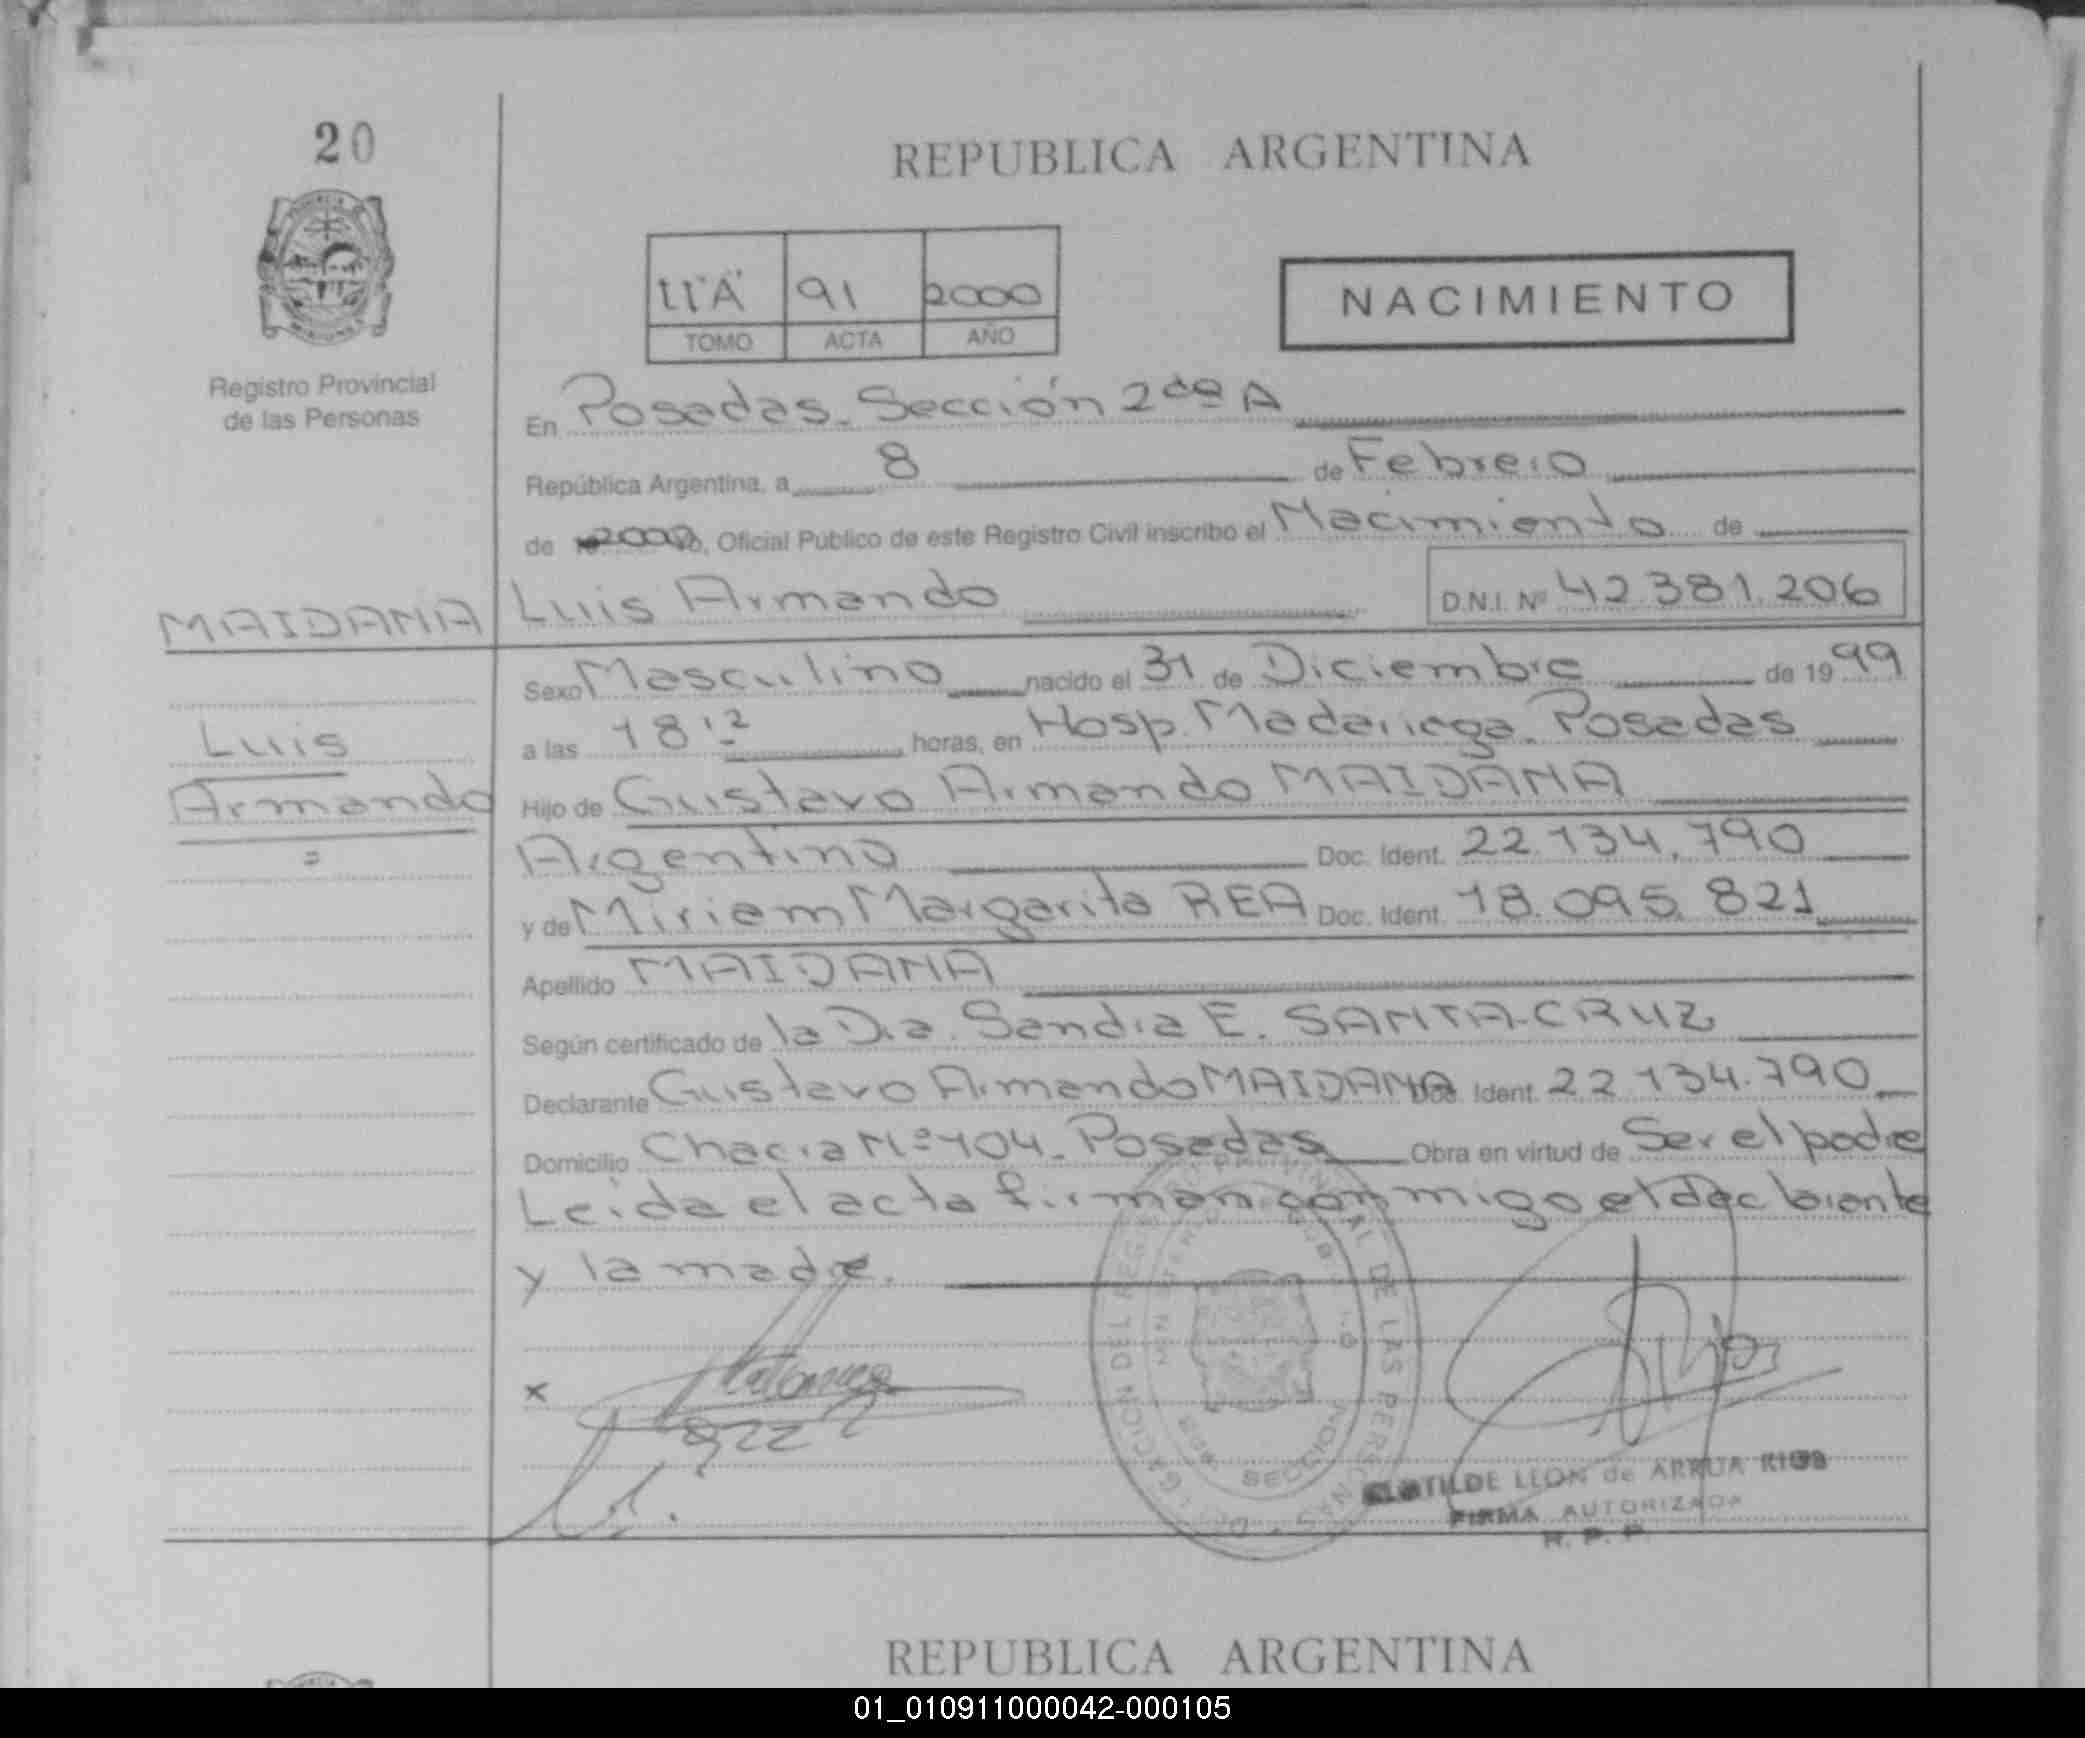 20
REPUBLICA ARGENTINA
II"A" 91 2000
TOMO ACTA AÑO
NACIMIENTO
Registro Provincial
de las Personas
En Posadas. Sección 2da A
República Argentina, a 8 de Febrero
de 2000, Oficial Público de este Registro Civil inscribo el Nacimiento de
MAIDANA Luis Armando D.N.I. Nº 42.381.206
Sexo Masculino nacido el 31 de Diciembre de 1999
Luis
a las 18 12 horas, en Hosp. Madariaga. Posadas
Armando
Hijo de Gustavo Armando MAIDANA
Argentino Doc. Ident. 22.134.790
y de Miriam Margarita REA Doc. Ident. 18.095.821
Apellido MAIDANA
Según certificado de la Dra. Sandra E. SANTA-CRUZ
Declarante Gustavo Armando MAIDANA Doc. Ident. 22.134.790
Domicilio Chacra Nº 104. Posadas Obra en virtud de Ser el padre
Leida el acta firman conmigo el declarante
y la madre.
x
DELEGACION DEL REGISTRO PROVINCIAL DE LAS PERSONAS
CLOTILDE LEON de ARRUA RIOS
FIRMA AUTORIZADA
R. P. P.
REPUBLICA ARGENTINA
01_010911000042-000105